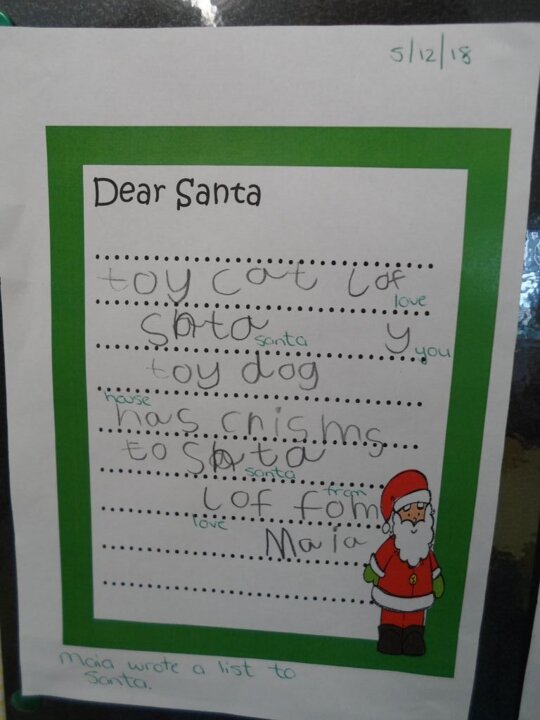 5/12/18
Dear Santa
toy cat lof
love
Snta y
santa you
toy dog
house
has cnisms
to Snta
santa
lof fom
love from
Maia
Maia wrote a list to
Santa.